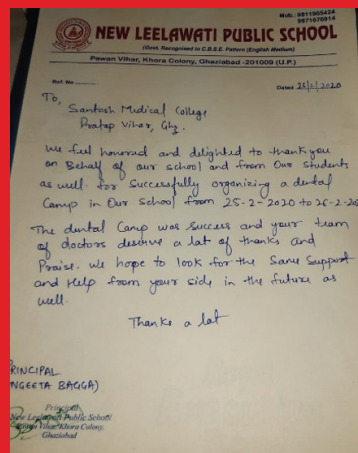 Mob.: 9911965424
9871676914
NEW LEELAWATI PUBLIC SCHOOL
(Govt. Recognised to C.B.S.E. Pattern (English Medium)
Pawan Vihar, Khora Colony, Ghaziabad -201009 (U.P.)
Ref. No
Dated 25/2/2020
To,
Santosh Medical College
Pratap Vihar, Ghz.
We feel honored and delighted to thank you
on Behalf of our school and from Our students
as well. for Successfully organizing a dental
Camp in Our School from 25-2-2020 to 26-2-202
The dental Camp was Success and your team
of doctors deserve a lot of thanks and
Praise. We hope to look for the Same Support
and Help from your side in the future as
well.
Thanks a lot
PRINCIPAL
NGEETA BAGGA)
Principal
New Leelawati Public School
Pawan Vihar Khora Colony,
Ghaziabad